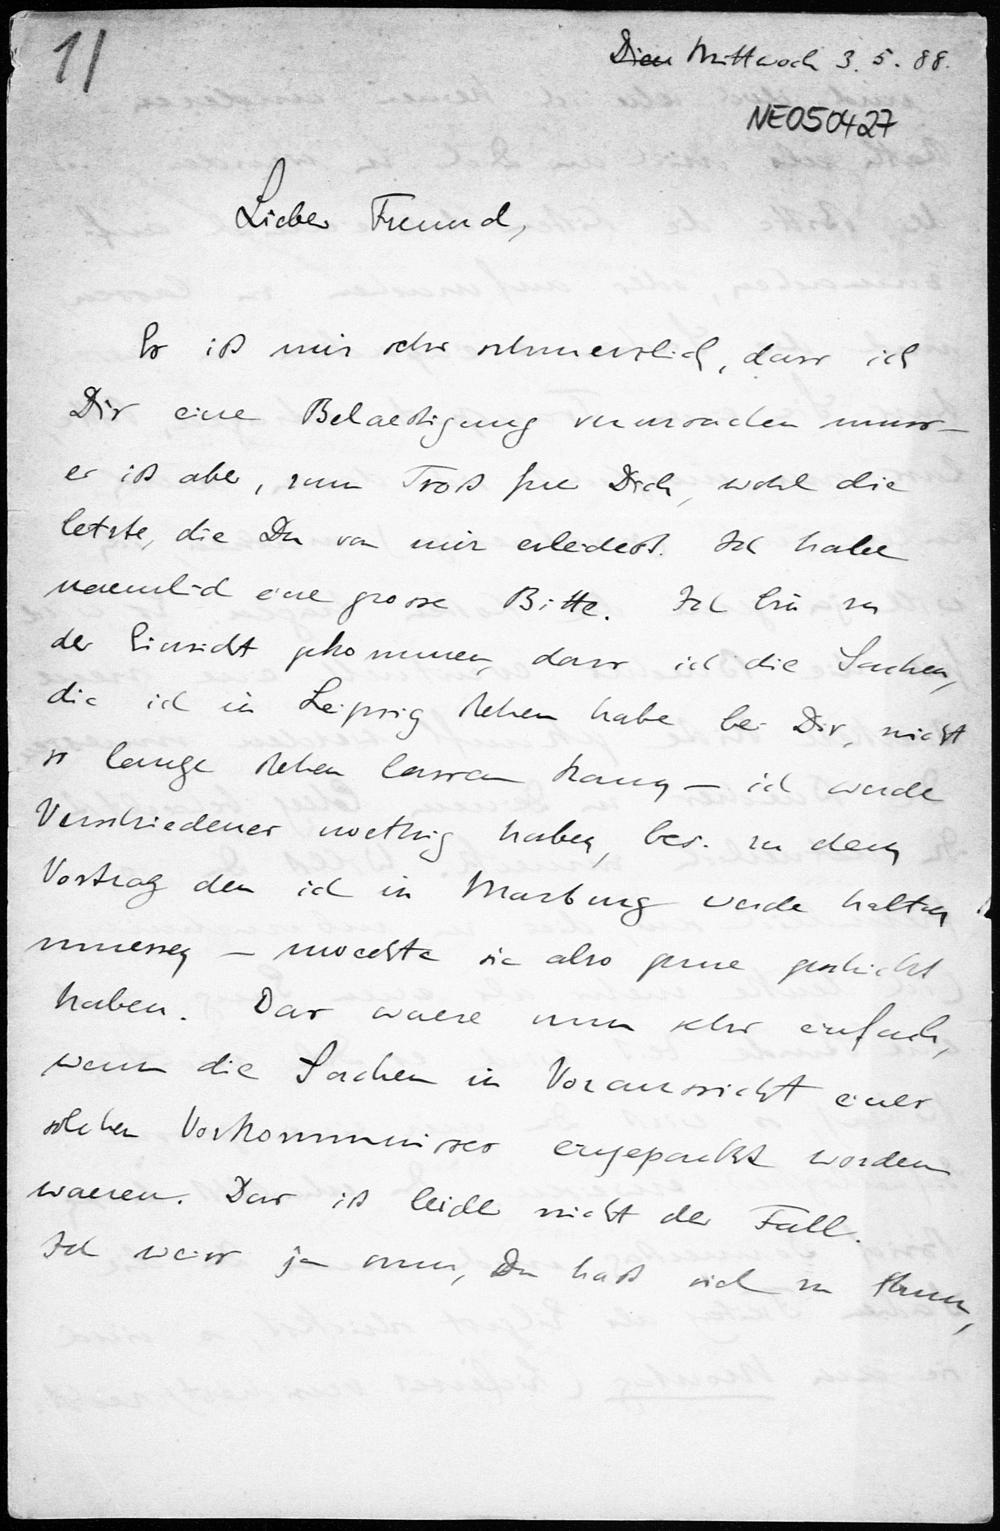 1/
Dien Mittwoch 3. 5. 88.
NE050427
Lieber Freund,
Es ist mir sehr schmerzlich, dass ich
Dir eine Belaestigung verursachen muss –
es ist aber, zum Trost fuer Dich, wohl die
letzte, die Du von mir erleidest. Ich habe
naemlich eine grosse Bitte. Ich bin zu
der Einsicht gekommen, dass ich die Sachen,
die ich in Leipzig stehen habe bei Dir, nicht
so lange stehen lassen kann – ich werde
Verschiedenes noethig haben, bes. zu dem
Vortrag den ich in Marburg werde halten
muessen – moechte sie also gerne geschickt
haben. Das waere nun sehr einfach,
wenn die Sachen in Voraussicht eines
solchen Vorkommnisses eingepackt worden
waeren. Das ist leider nicht der Fall.
Ich weiss ja nun, Du hast viel zu thun,